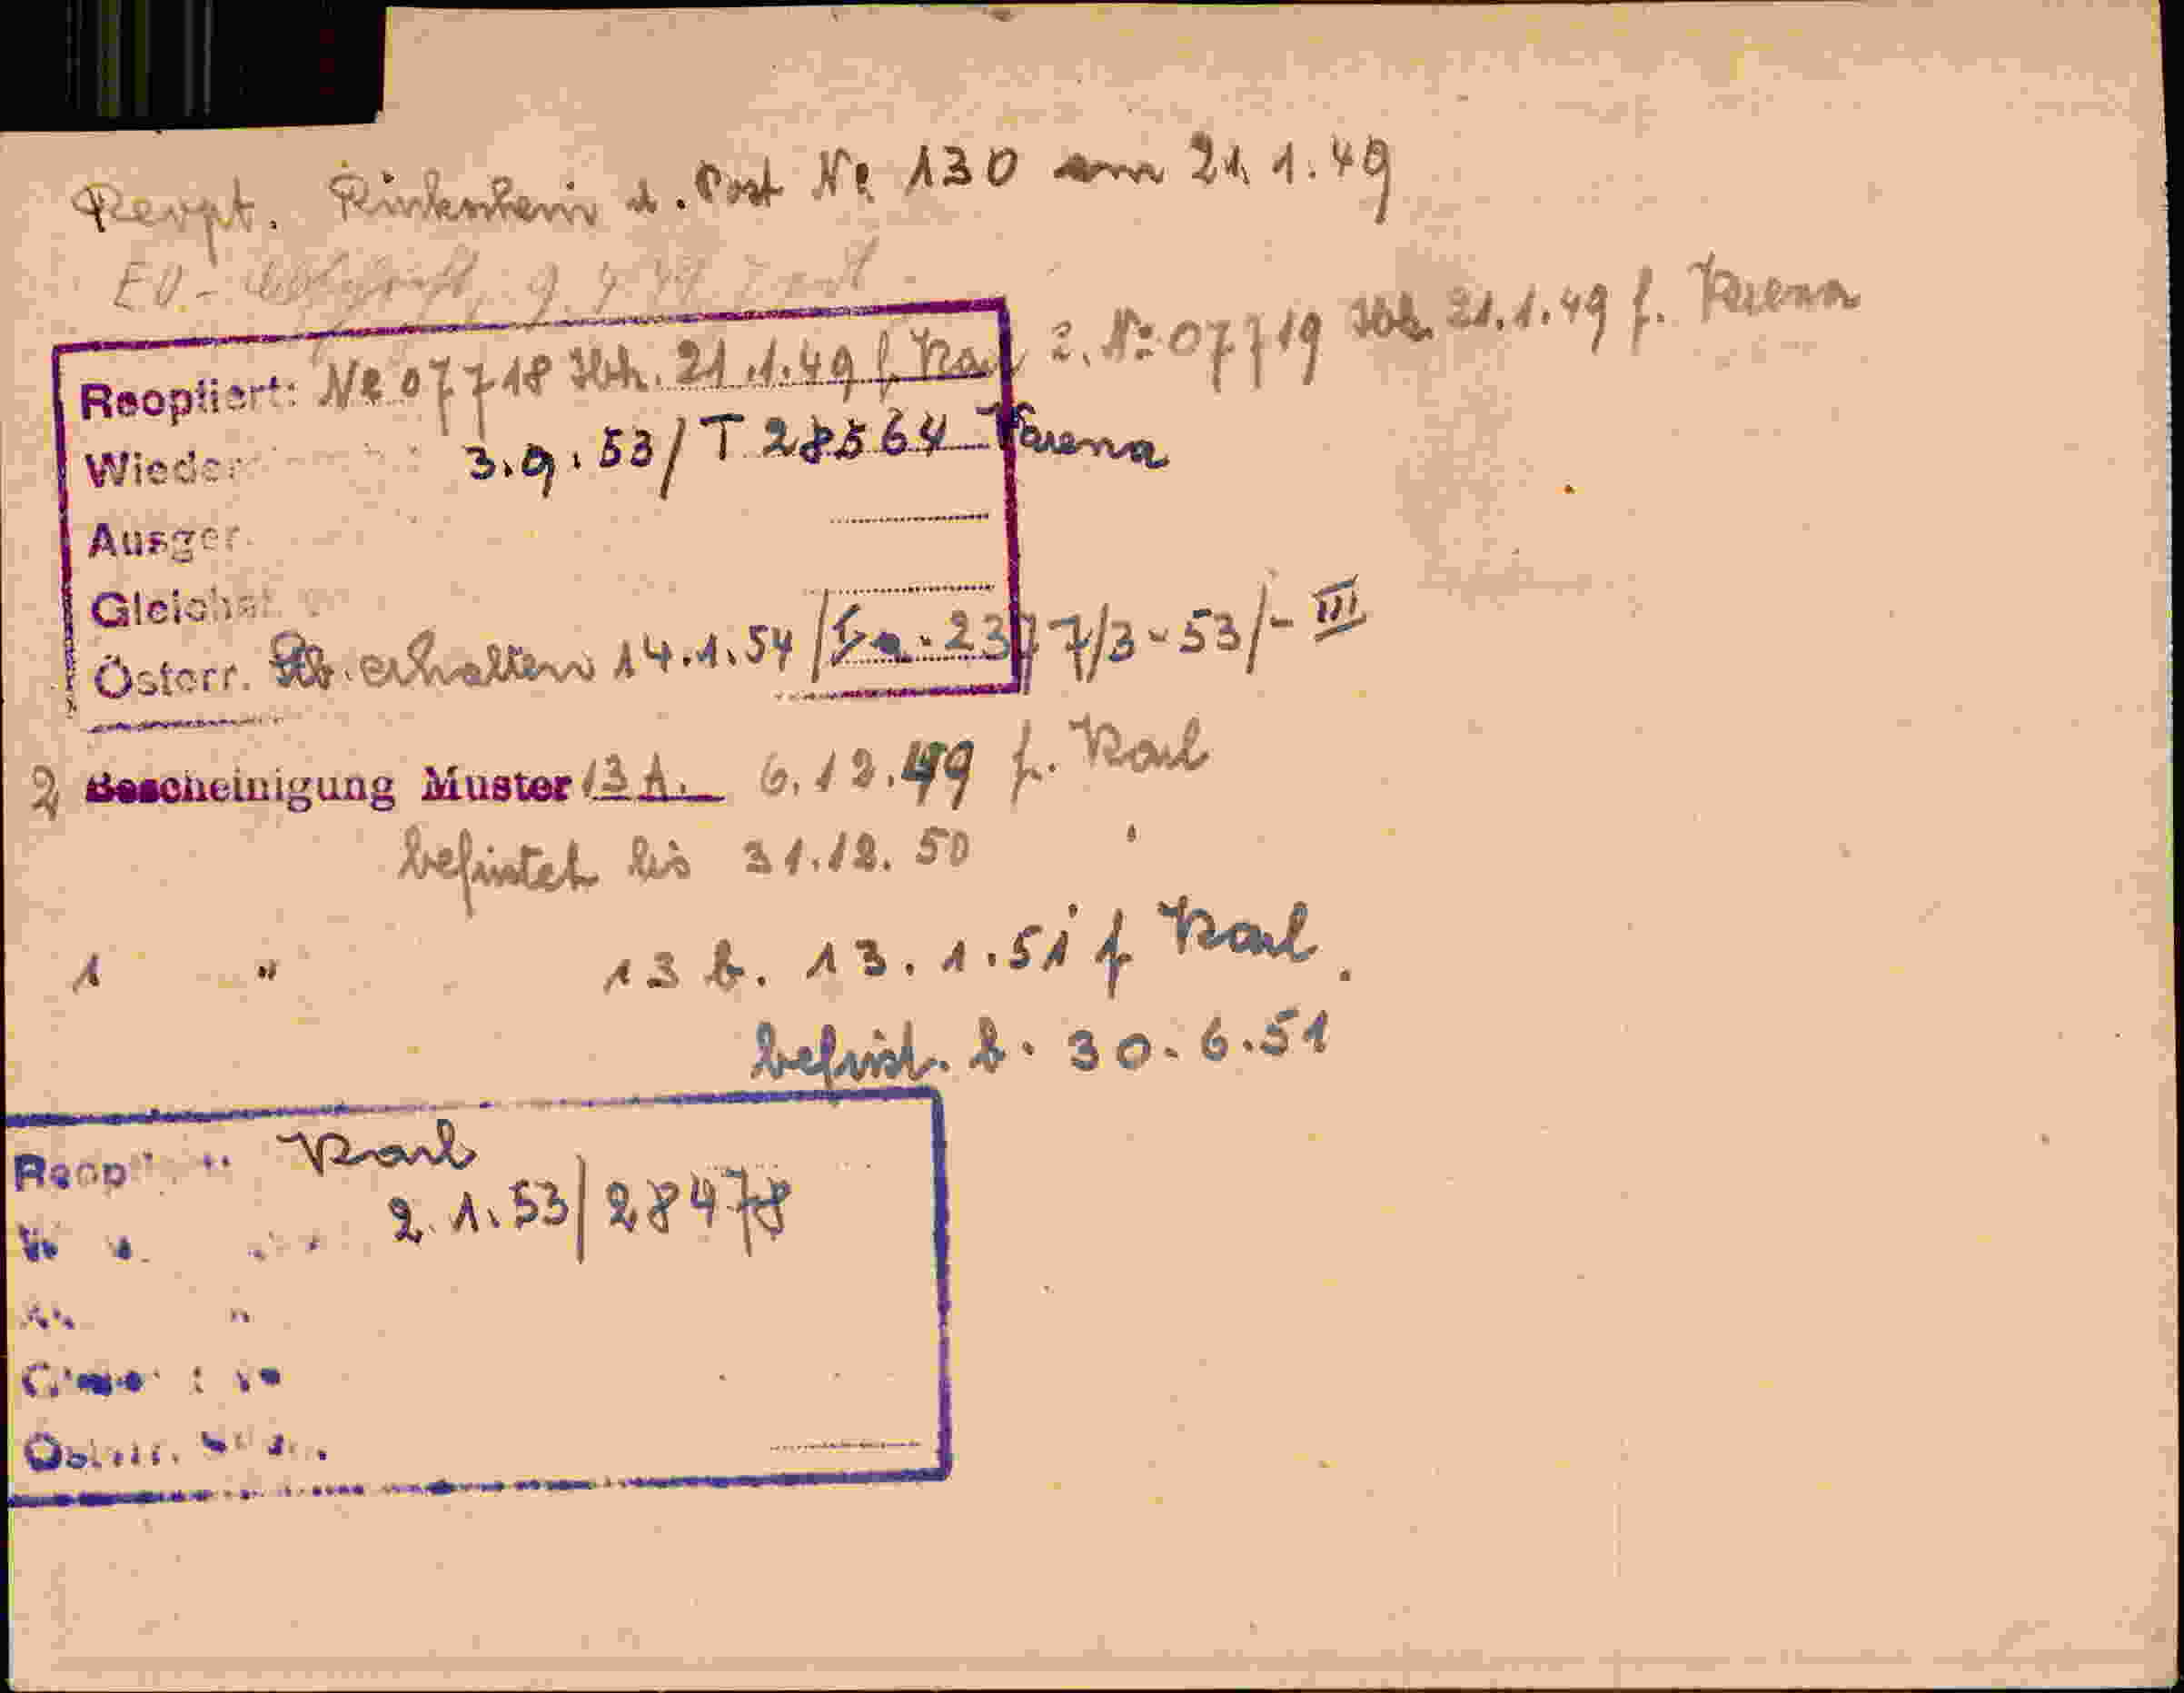 Reopt. Rückschein d. Post № 130 am 21.1.49
EO-
Reoptiert: № 07718 Ibk. 21.1.49 f. Karl 2. № 07719 Ibk. 21.1.49 f. Verena
Wieder 3.9.53/T 28564 Verena
Ausger.
Gleichst.
Österr. Stb. erhalten 14.1.54 /Ia-2377/3-53/-III
2 Bescheinigung Muster 13 A. 6.12.49 f. Karl
befristet bis 31.12.50
1 " 13 b. 13.1.51 f Karl.
befrist. b. 30.6.51
Reop Karl
2.1.53/28478
Österr.